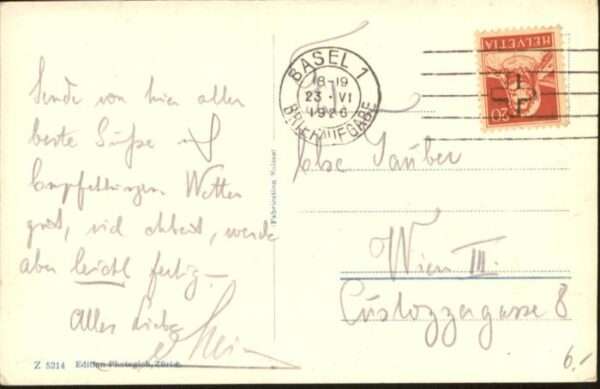 Sende von hier aller
beste Grüße und
Empfehlungen Wetter
gut, viel Arbeit, werde
aber leicht fertig –
Alles Liebe
BASEL 1
18-19
23·VI
1926
BRIEFAUFGABE
HELVETIA
20
Else Tauber
Wien III.
Custozzagasse 8
(Fabrication Suisse)
Z 5214 Edition Photoglob, Zürich
6.-